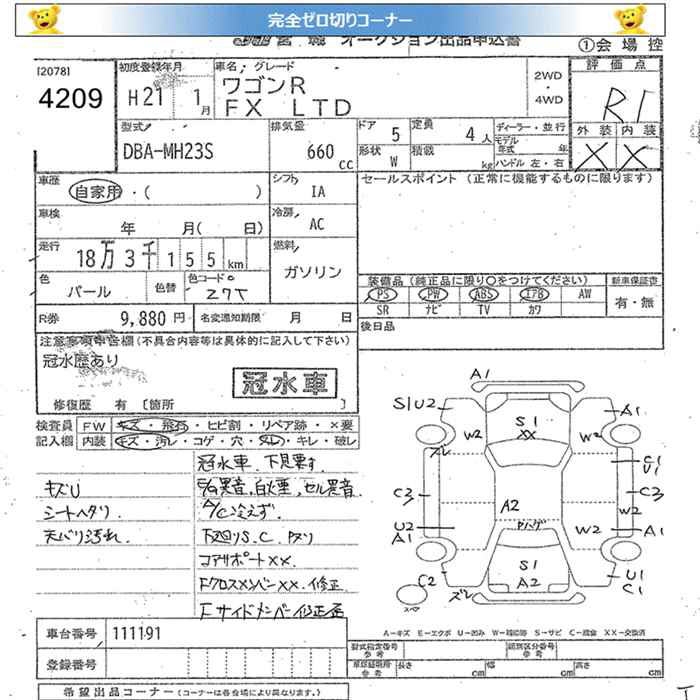 完全ゼロ切りコーナー
オークション出品申込書
①会場控
[2078]
4209
初度登録年月
H21 1月
車名・グレード
ワゴンR
FX LTD
2WD
・
4WD
評価点
R1
外装 内装
X X
型式
DBA-MH23S
排気量
660 cc
ドア 5
定員 4人
形状 W
積載 kg
ディーラー・並行
モデル年式 年
ハンドル 左・右
車歴
自家用・( )
シフト
IA
セールスポイント (正常に機能するものに限ります)
車検
年 月( 日)
冷房
AC
走行
18万3千155km
燃料
ガソリン
色
パール
色替
色コード
Z7T
装備品(純正品に限り○をつけてください)
新車保証書
PS PW ABS エアB AW
有・無
SR ナビ TV カワ
R券 9,880円
名変通知期限 月 日
後日品
注意事項申告欄(不具合内容等は具体的に記入して下さい)
冠水歴あり
冠水車
修復歴 有 [箇所 ]
検査員 FW キズ・飛石・ヒビ割・リペア跡・×要
記入欄 内装 キズ・汚レ・コゲ・穴・スレ・キレ・破レ
キズU
シートヘタリ
天バリ汚れ.
冠水車. 下見要す.
E/G異音,白煙,セル異音.
A/C冷えず.
下廻りS.C.
コアサポートXX.
FクロスメンバーXX.修正
Fサイドメンバー修正歴
A1
S1U2
W2
ズレ
S1
XX
W2
A1
C1
U1
C3
C3
A2
W2
U2
A1
W2
A1
S1
A2
C2
ズレ
U1
C1
スペア
A-キズ E-エクボ U-凹み W-補修跡 S-サビ C-腐食 XX-交換済
車台番号 111191
登録番号
型式指定番号 参考
類別区分番号 参考
車庫証明用 参考
長さ cm
幅 cm
高さ cm
希望出品コーナー (コーナーは各会場により異なります。)